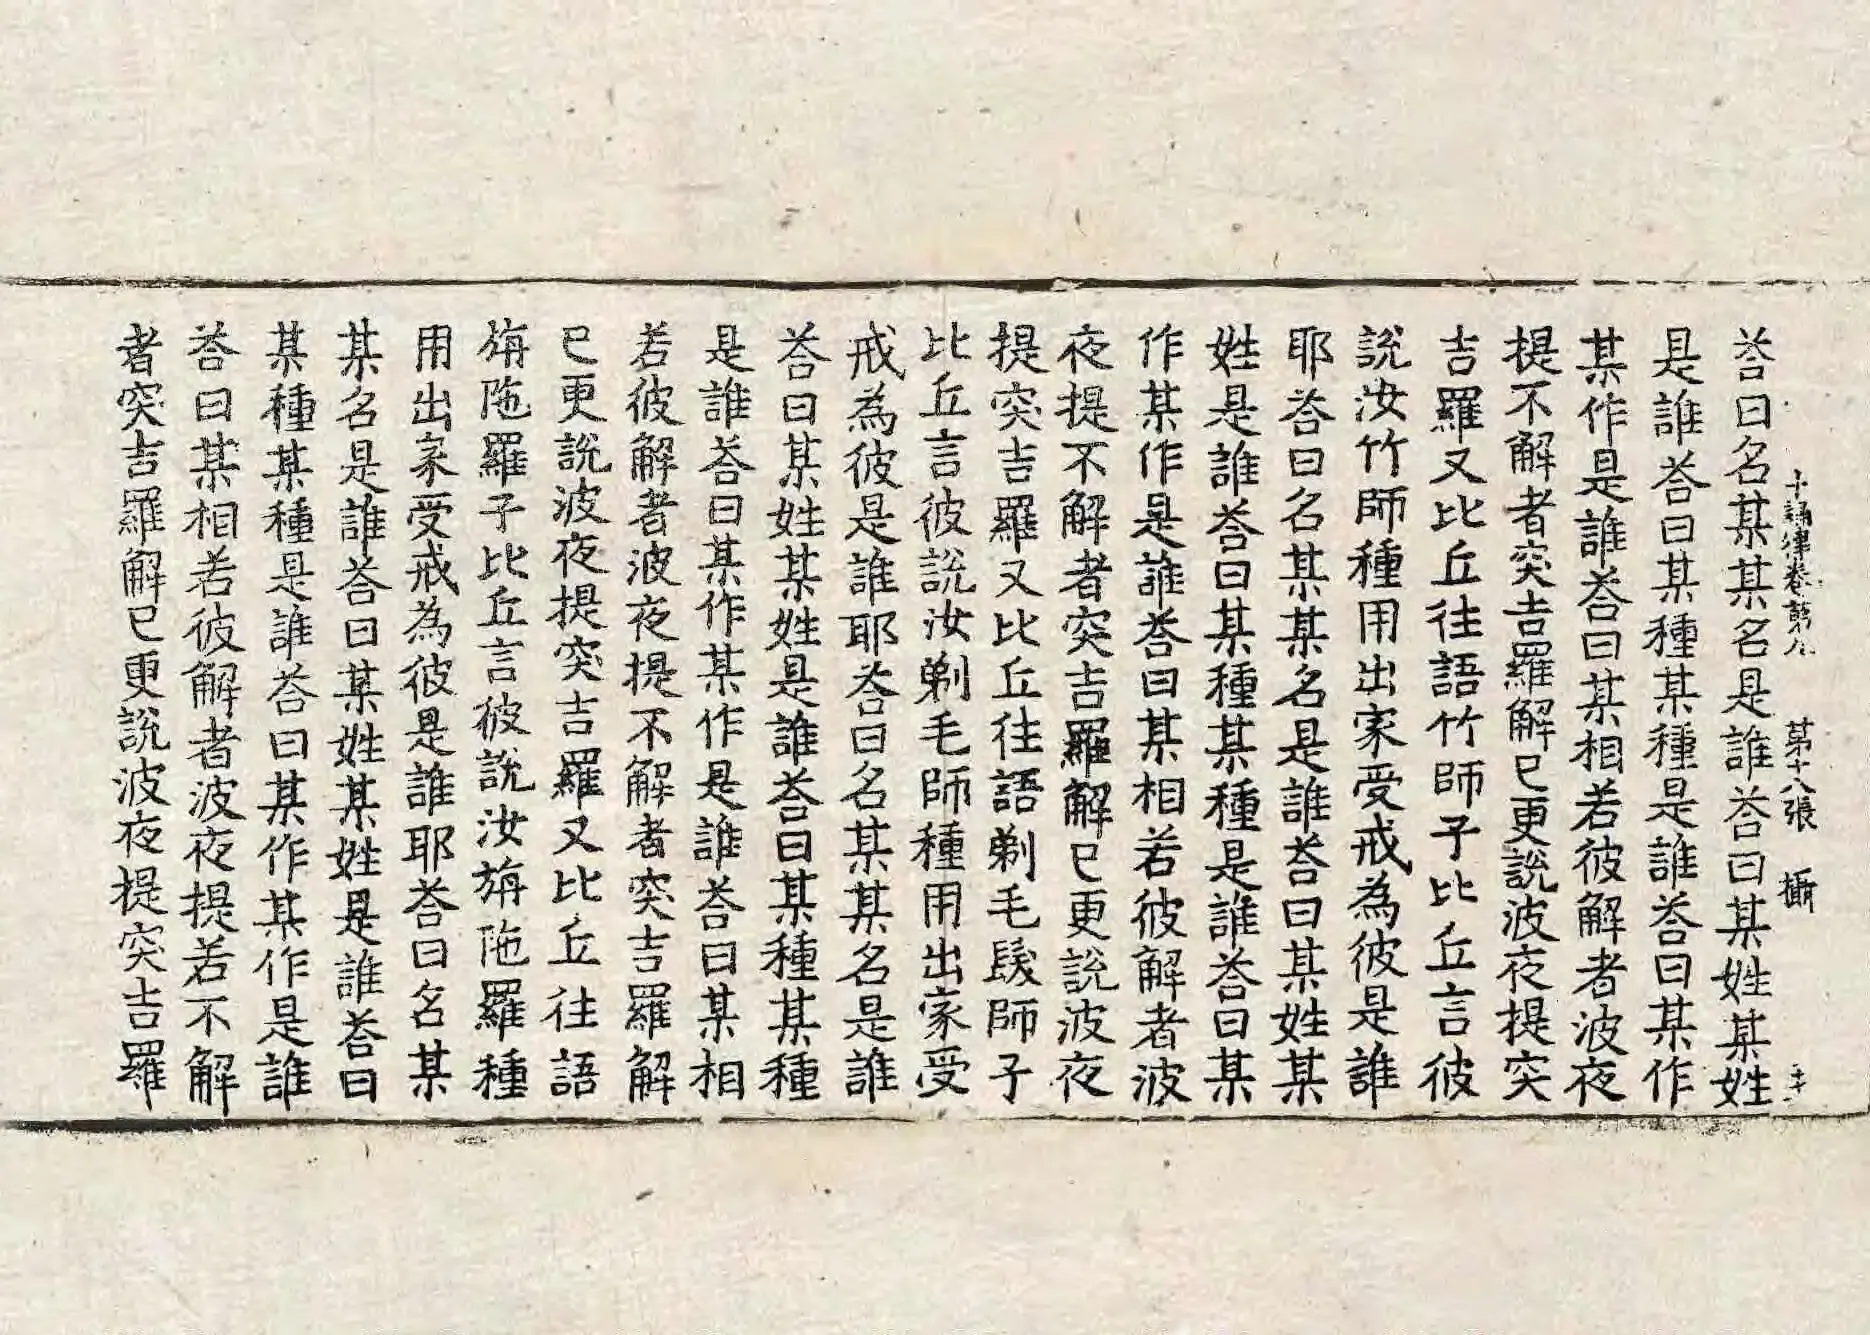 十誦律卷第九 第十八張 攝
荅曰名某某名是誰荅曰某姓某姓
是誰荅曰某種某種是誰荅曰某作
某作是誰荅曰某相若彼解者波夜
提不解者突吉羅解已更說波夜提突
吉羅又比丘往語竹師子比丘言彼
說汝竹師種用出家受戒為彼是誰
耶荅曰名某某名是誰荅曰某姓某
姓是誰荅曰某種某種是誰荅曰某
作某作是誰荅曰某相若彼解者波
夜提不解者突吉羅解已更說波夜
提突吉羅又比丘往語剃毛髮師子
比丘言彼說汝剃毛師種用出家受
戒為彼是誰耶荅曰名某某名是誰
荅曰某姓某姓是誰荅曰某種某種
是誰荅曰某作某作是誰荅曰某相
若彼解者波夜提不解者突吉羅解
已更說波夜提突吉羅又比丘往語
旃陁羅子比丘言彼說汝旃陁羅種
用出家受戒為彼是誰耶荅曰名某
某名是誰荅曰某姓某姓是誰荅曰
某種某種是誰荅曰某作某作是誰
荅曰某相若彼解者波夜提若不解
者突吉羅解已更說波夜提突吉羅